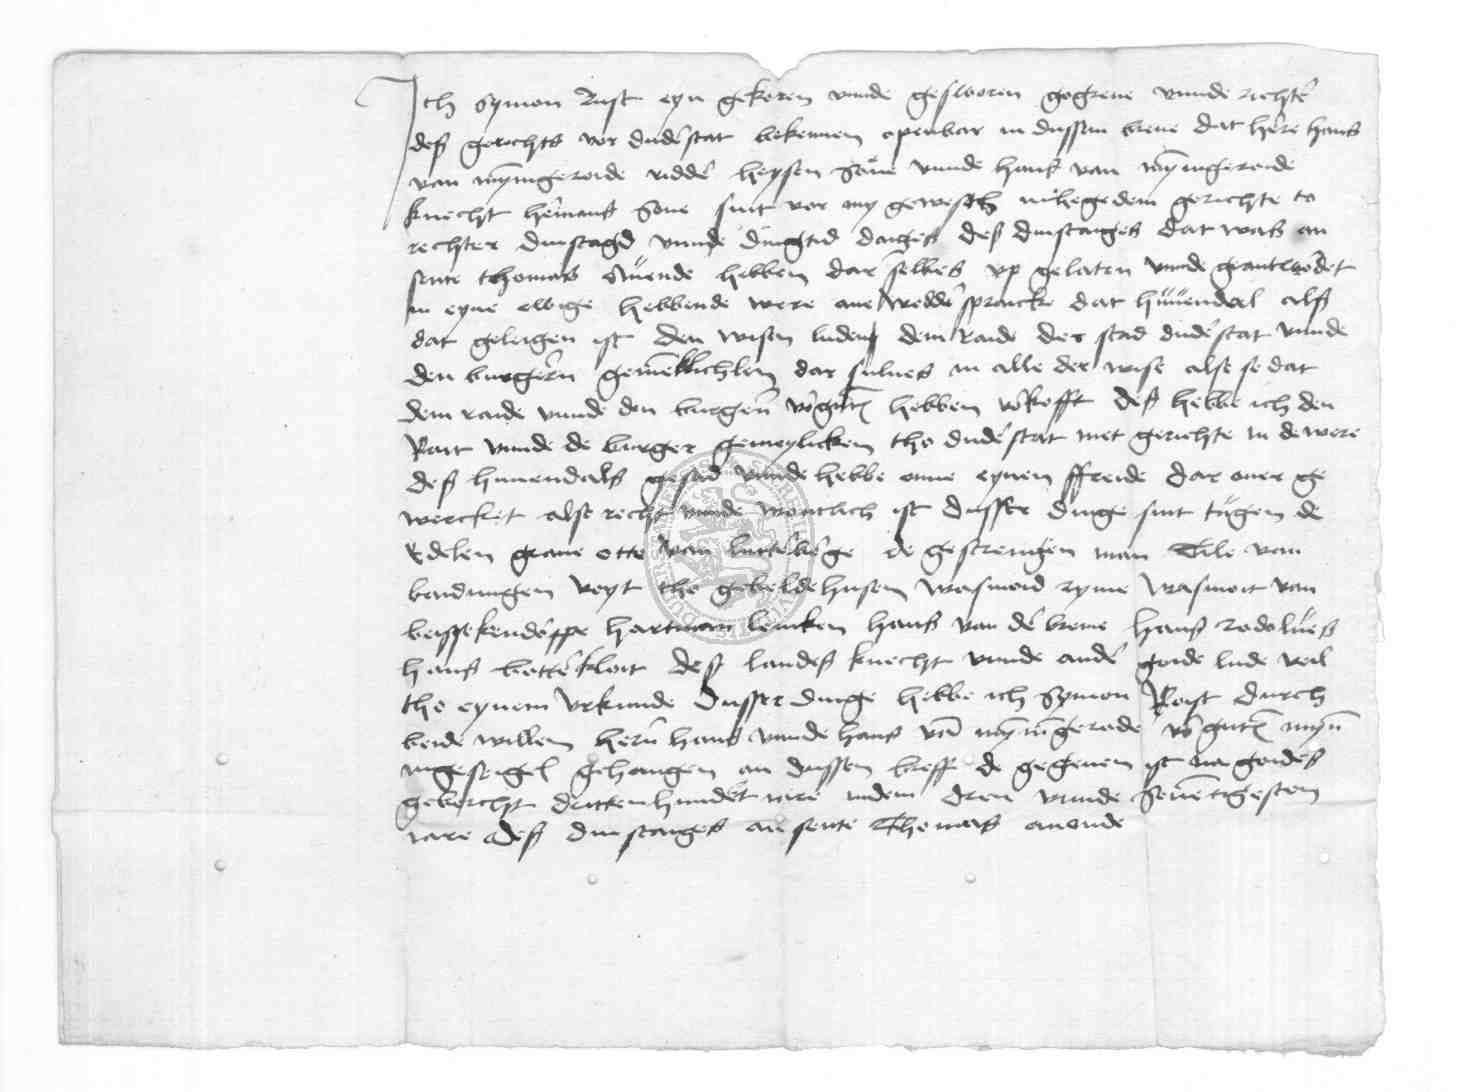 Ich Symon Rust eyn gekoren vnnde gesworen gogreue vnnde richter
deß gerichts vor duderstat bekennen openbar in dussem breue dat here hans
van wyntzingeroide ridder heysen Sone vnnde hans van wyntzingeroide
knecht hermans Sone sint vor my gewesth in hegedem gerichte to
rechter dinstagd vnnde dingtid daiges deß dinstages dat was an
sente thomas Auende hebben dar selues vp gelaten vnnde geantwordet
in eyne ewige hebbende were ane wedder sprancke dat huuendal alß
dat gelegen ist den wisen luden dem Raide der stad duderstat vnnde
den burgern gemeklichken dar sulues in alle der wise alse se dat
dem raide vnnde den burgern vorgnt hebben vorkofft deß hebbe ich den
Rait vnnde de burger gemeylicken tho duderstat met gerichte in de were
deß huuendals gesad vnnde hebbe onne eynen ffreide dar ouer ge
wercket alse recht vnnde wontlich ist dusser dinge sint tugen de
Edelen graue otte van lutterberge de gestrengen man Tile van
bodungen voyt tho gebeldehusen wasmoid ryme wasmoit van
beissekendorppe hartman lenken hans van der breme hans rodolues
hans botterkloit deß landes knecht vnnde ander goide lude veil
tho eynem vrkunde dusser dinge hebbe ich Symon Rost durch
beide willen hern hans vnnde hans van wyntzingerode vorgnt myn
ingesegel gehangen an dussen breff de gegeuen ist na goides
geborcht dritteinhundert iare indem dren vnnde Seuentigestem
iare deß dinstages an sente Thomas auonde